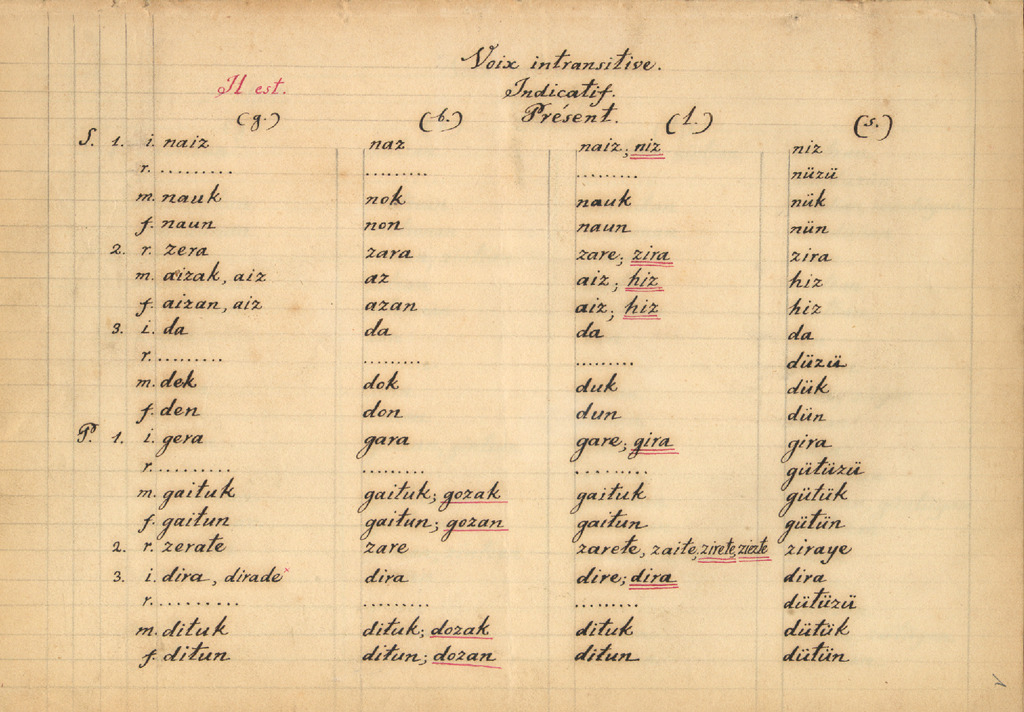 Voix intransitive.
Il est. Indicatif.
Présent.
(g.) (b.) (l.) (s.)
S. 1. i. naiz naz naiz; niz niz
r. ......... ......... ......... nüzü
m. nauk nok nauk nük
f. naun non naun nün
2. r. zera zara zare; zira zira
m. aizak, aiz az aiz; hiz hiz
f. aizan, aiz azan aiz; hiz hiz
3. i. da da da da
r. ......... ......... ......... düzü
m. dek dok duk dük
f. den don dun dün
P. 1. i. gera gara gare; gira gira
r. ......... ......... ......... gütüzü
m. gaituk gaituk; gozak gaituk gütük
f. gaitun gaitun; gozan gaitun gütün
2. r. zerate zare zarete, zaite, zirete, ziezte ziraye
3. i. dira, dirade× dira dire; dira dira
r. ......... ......... ......... dütüzü
m. dituk dituk; dozak dituk dütük
f. ditun ditun; dozan ditun dütün